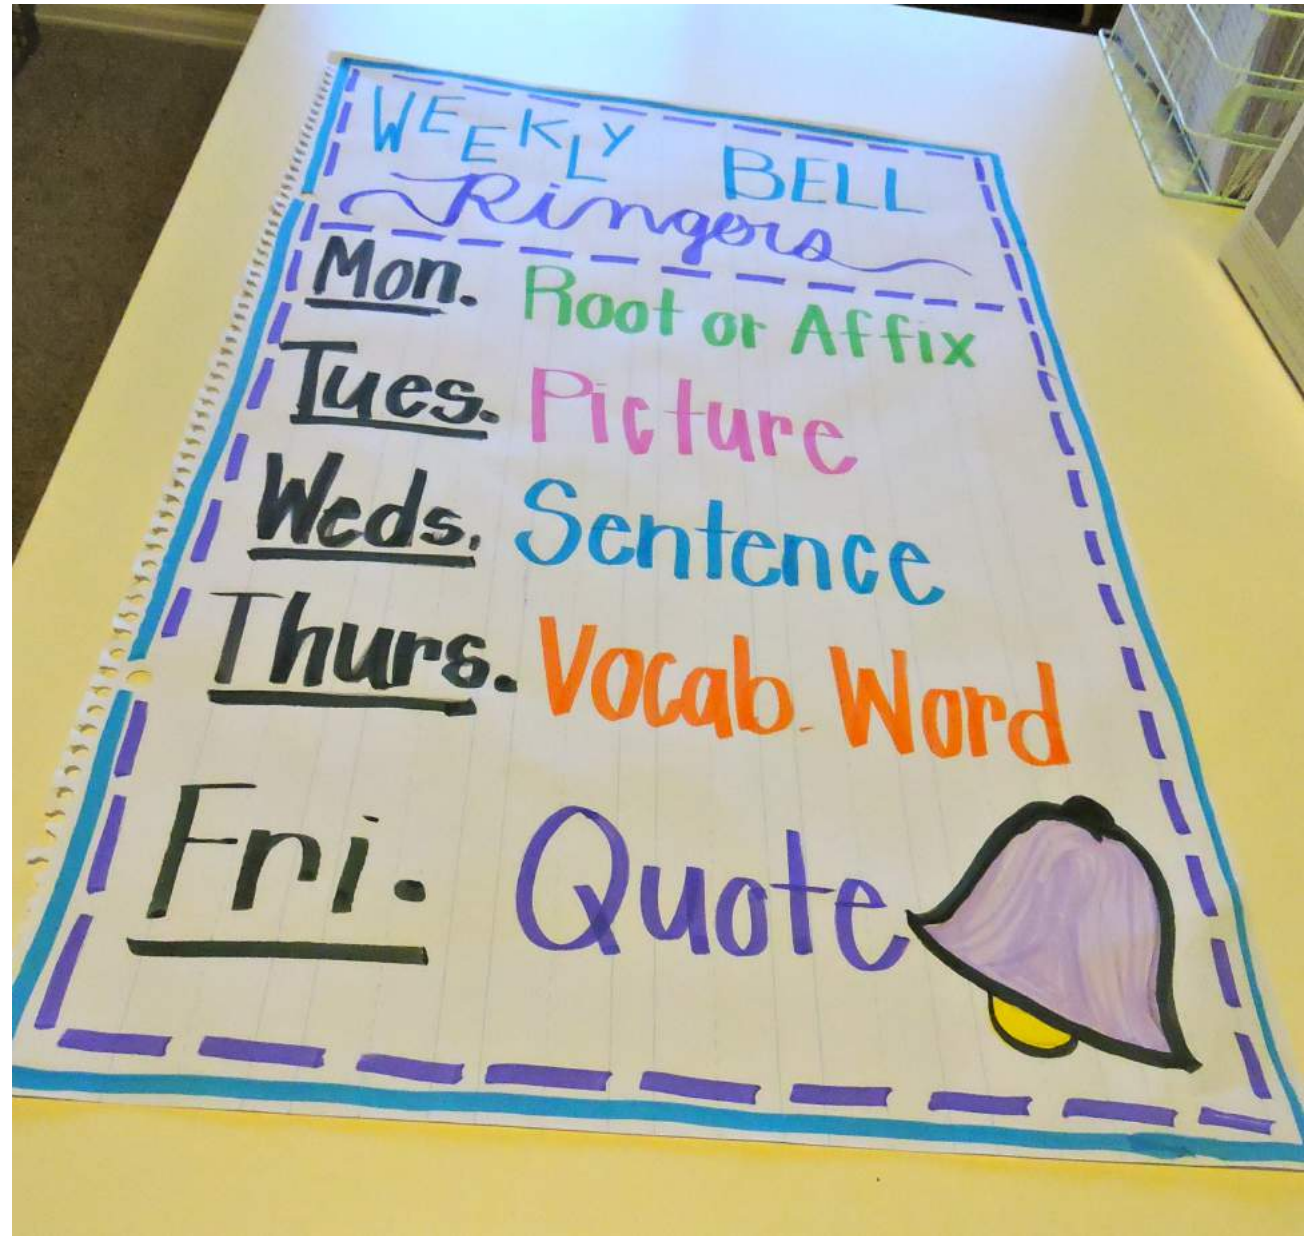 WEEKLY BELL
Ringers
Mon. Root or Affix
Tues. Picture
Weds. Sentence
Thurs. Vocab. Word
Fri. Quote